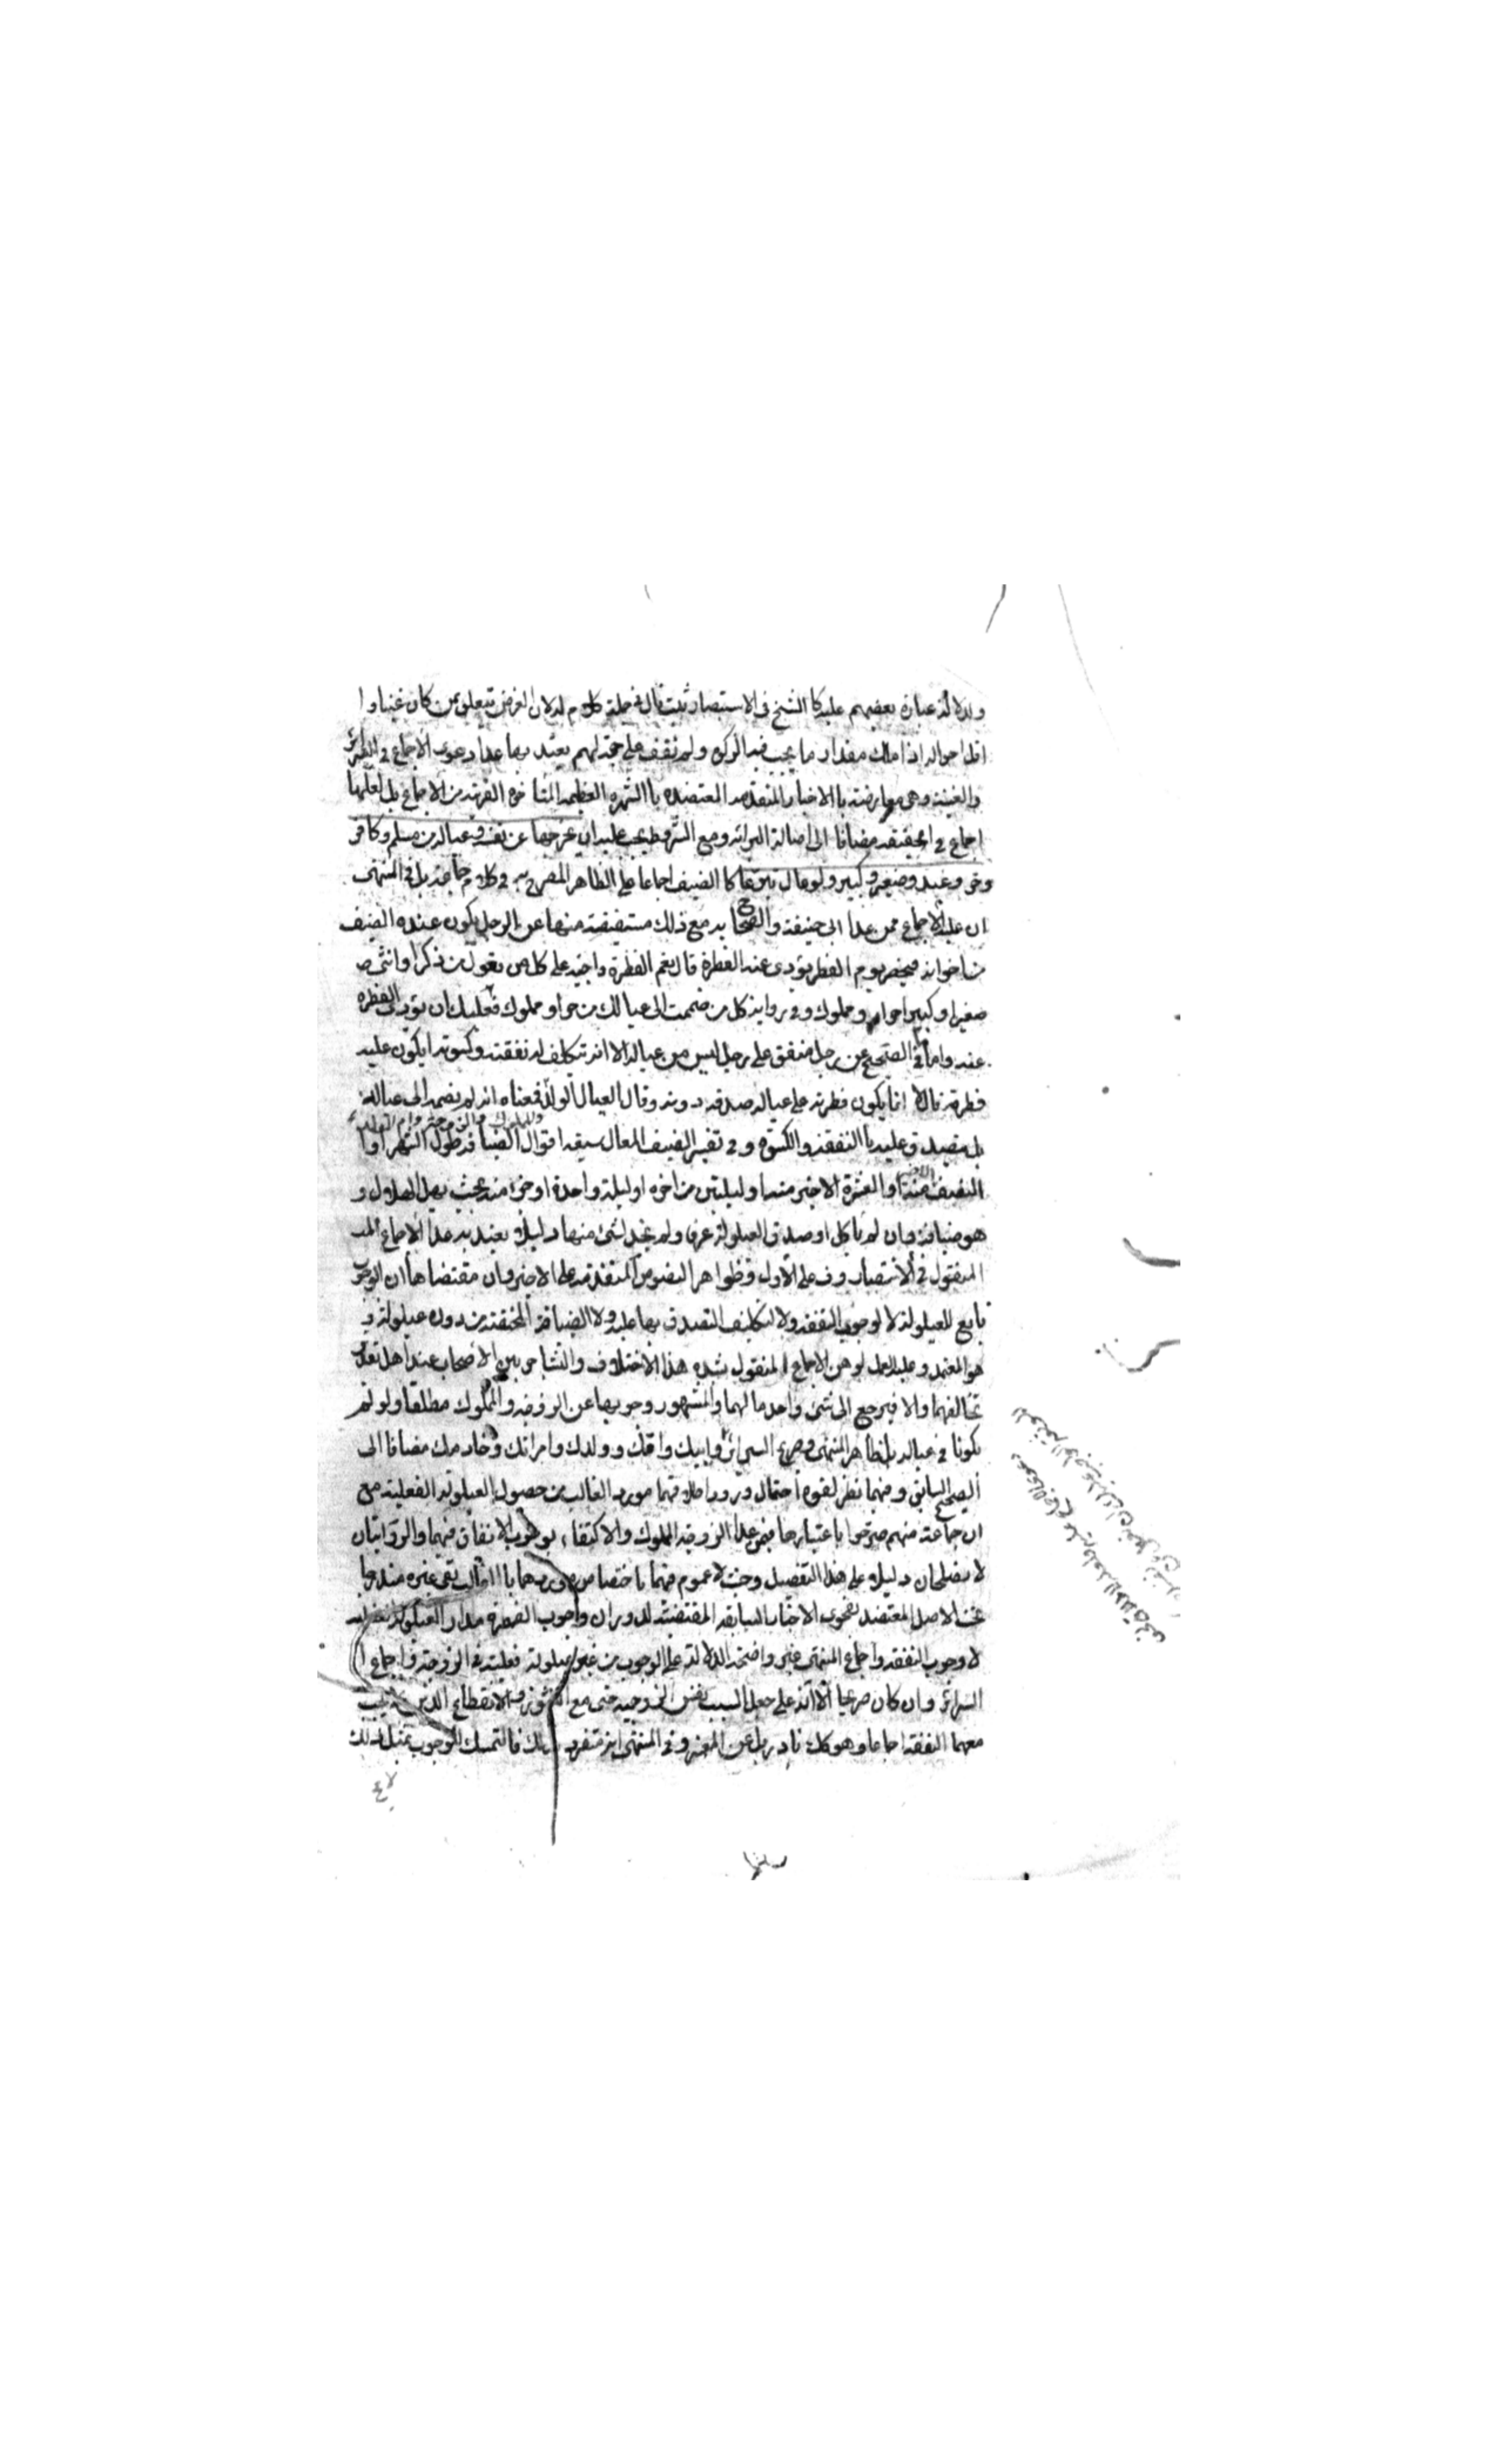 ولدلالة عبارة بعضهم عليه كا الشيخ في الاستبصار حيث قال في جملة كلام له لان الفرض يتعلق بمن كان غنيا وا
اقل احواله اذا ملك مقدار ما يجب فيه الزكوة ولم نقف على حجة لهم يعتد بها عدا دعوى الاجماع في
والغنية وهى معارضة با الاخبار المتقدمه المعتضده با الشهرة العظيمه المتاخره القريبة من الاجماع بل لعلها
اجماع في الحقيقه مضافا الى اصالة البرائه ومع الشروط يجب عليه ان يخرجها عن نفسه وعياله من مسلم وكافر
وحر وعبد وصغير وكبير ولو عال تبرعا كا الضيف اجماعا على الظاهر المصرح به في كلام جماعة بل في المنتهى
ان عليه الاجماع ممن عدا ابى حنيفة والصحاح به مع ذلك مستفيضة منها عن الرجل يكون عنده الضيف
من اخوانه فيحضر يوم الفطر يؤدى عنه الفطرة قال نعم الفطرة واجبة على كل من يعول من ذكر او انثى
صغير او كبير احر او مملوك وفي رواية كل من ضممت الى عيالك من حر او مملوك فعليك ان تؤدى الفطره
عنه واما في الصحيح عن رجل ينفق على رجل ليس من عياله الا انه يتكلف له نفقته وكسوته ايكون عليه
فطرته قال لا انما يكون فطرته على عياله صدقه دونه وقال العيال الولد فمعناه انه لم يضمه الى عياله
والمملوك والزوجة وام الولد
بل يتصدق عليه با النفقة والكسوة وفي تفسير الضيف المعال سبعة اقوال الضيافه طول الشهر او
النصف الاخير منه او العشرة الاخير منه او ليلتين من اخره او ليلة واحدة او جزء منه بحيث يهل الهلال و
هو ضيافة وان لم ياكل او صدق العيلولة عرفا ولم نجد لشئ منها دليلا يعتد به عدا الاجماع
المنقول في الانتصار وف على الاول وظواهر النصوص المتقدمه على الاخير وان مقتضاها ان الوجوب
تابع للعيلولة لا لوجوب النفقه ولا لتكليف التصدق بها عليه ولا الضيافة المحققة من دون عيلولة و
هو المعتمد وعليه العمل لوهن الاجماع المنقول بشده هذا الاختلاف والتشاجر بين الاصحاب عند اهل
تخالفهما والا فيرجع الى شئ واحد مالهما والمشهور وجوبها عن الزوجه والمملوك مطلقا ولو لم
يكونا في عياله بل ظاهر المنتهى وصريح السرائر وابيك وامك وولدك وامراتك وخادمك مضافا الى
الصحيح السابق وفيهما نظر لقوة احتمال ورود اطلاقهما مورد الغالب من حصول العيلولة الفعلية مع
ان جماعة منهم صرحوا باعتبارها فيمن عدا الزوجه والمملوك والاكتفاء بوجوب الانفاق فيهما والروايتان
لا يصلحان دليلا على هذا التفصيل وحيث لا عموم فيهما باختصاص موردهما با الغالب بقى غيره مندرجا
تحت الاصل المعتضد بفحوى الاخبار السابقه المقتضية لدوران وجوب الفطرة مدار العيلولة
لا وجوب النفقه واجماع المنتهى غير واضحة الدلالة على الوجوب من غير عيلولة فعلية في الزوجة واجماع
السرائر وان كان صريحا الا انه على جعل السبب نفس الزوجيه حتى مع النشوز والانقطاع الذين لا يجب
معهما النفقة اجماعا وهو كك نادر بل عن المعتبر وفي المنتهى انه متفرد بذلك فالتمسك للوجوب بمثل ذلك